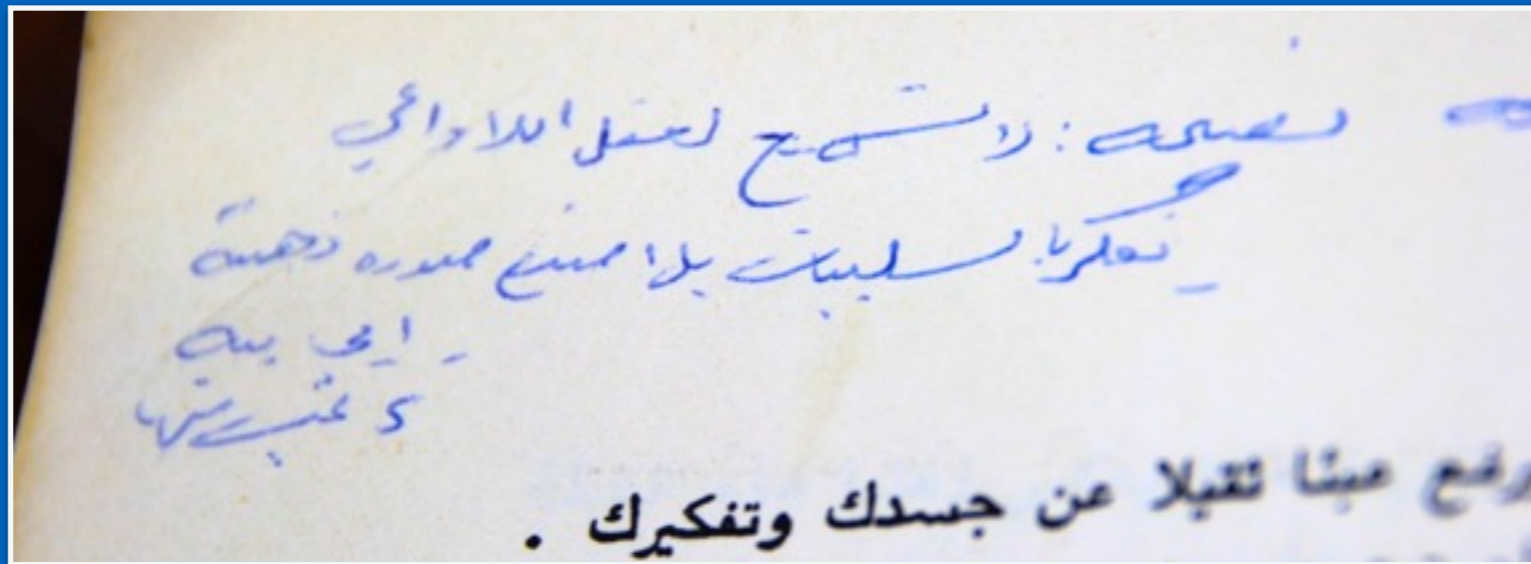 نصيحه : لا تسمح لعقل اللاواعي
يفكر بالسلبيات بل اصنع صوره ذهنية
إيجابية
رفع عبئا ثقيلا عن جسدك وتفكيرك .